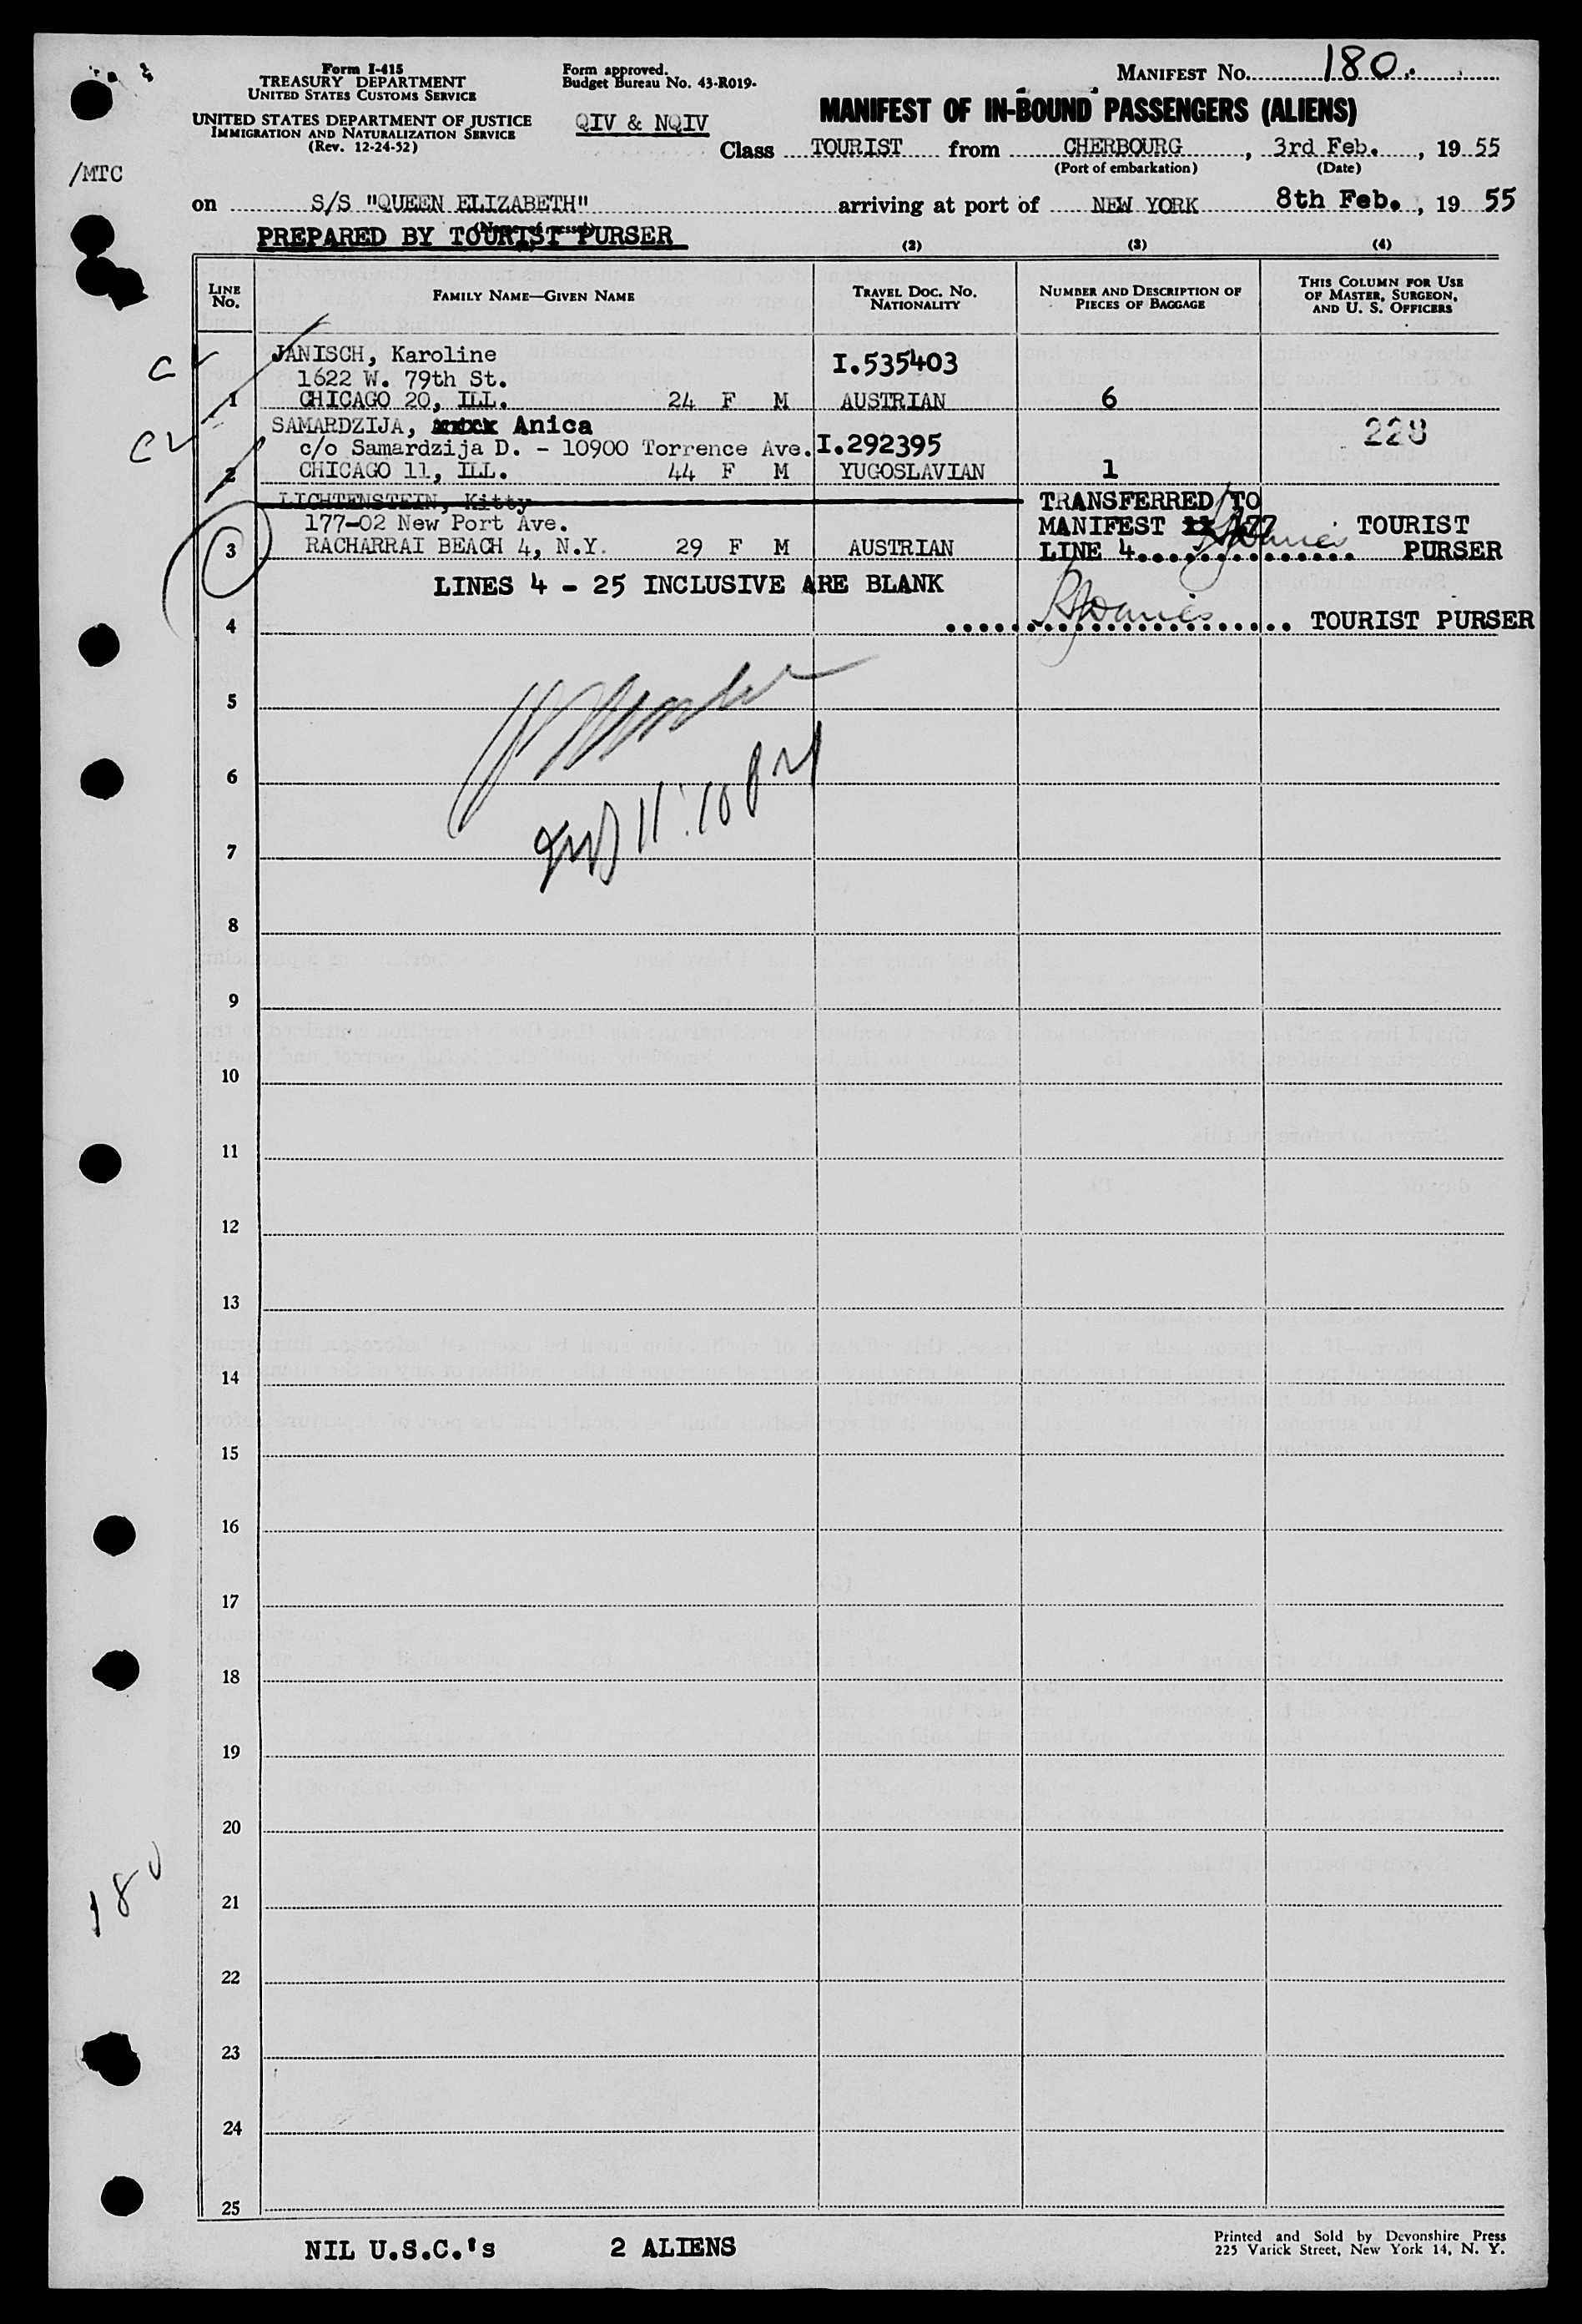 Form I-415
TREASURY DEPARTMENT
UNITED STATES CUSTOMS SERVICE
UNITED STATES DEPARTMENT OF JUSTICE
IMMIGRATION AND NATURALIZATION SERVICE
(Rev. 12-24-52)
/MTC
Form approved.
Budget Bureau No. 43-R019-
QIV & NQIV
MANIFEST NO. 180.
MANIFEST OF IN-BOUND PASSENGERS (ALIENS)
Class TOURIST from CHERBOURG, 3rd Feb., 19 55
(Port of embarkation) (Date)
on S/S "QUEEN ELIZABETH" arriving at port of NEW YORK 8th Feb., 19 55
(Name of vessel)
PREPARED BY TOURIST PURSER
(2) (3) (4)
LINE NO. FAMILY NAME—GIVEN NAME TRAVEL DOC. NO. NATIONALITY NUMBER AND DESCRIPTION OF PIECES OF BAGGAGE THIS COLUMN FOR USE OF MASTER, SURGEON, AND U. S. OFFICERS
C JANISCH, Karoline
1622 W. 79th St. I.535403
1 CHICAGO 20, ILL. 24 F M AUSTRIAN 6
C SAMARDZIJA, Anica 228
c/o Samardzija D. - 10900 Torrence Ave. I.292395
2 CHICAGO 11, ILL. 44 F M YUGOSLAVIAN 1
LICHTENSTEIN, Kitty TRANSFERRED TO
177-02 New Port Ave. MANIFEST 177 TOURIST
3 RACHARRAI BEACH 4, N.Y. 29 F M AUSTRIAN LINE 4 PURSER
LINES 4 - 25 INCLUSIVE ARE BLANK
4 TOURIST PURSER
5
6
11:10 PM
7
8
9
10
11
12
13
14
15
16
17
18
19
20
180
21
22
23
24
25
NIL U.S.C.'s 2 ALIENS
Printed and Sold by Devonshire Press
225 Varick Street, New York 14, N. Y.